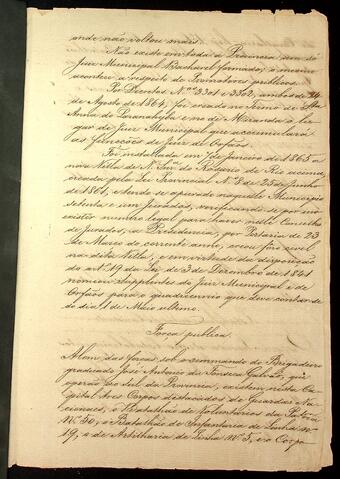 onde não voltou mais.
Não existe em toda a Provincia um só
Juiz Municipal Bacharel formado; o mesmo
acontece a respeito de Promotores publicos.
Por Decretos Nos 3301 e 3302, ambos de 24
de Agosto de 1864, foi creado no Termo de Sta
Anna do Paranahyba e no de Miranda o lu-
gar de Juiz Municipal que accumulará
as funcções de Juiz de Orfãos
Foi installada em 7 de Janeiro de 1865 a
nova Villa de N. Snra do Rosario do Rio acima,
creada pela Lei Provincial No 8 de 25 de Junho
de 1861, e tendo se apurado naquelle Municipio
setenta e um Jurados, verificando se por isso
existir numero legal para haver nelle Conselho
de Jurados, a Presidencia, por Portaria de 23
de Março do corrente anno, creou fôro civel
na dita Villa, e em virtude da disposição
do artº 19 da Lei de 3 de Dezembro de 1841
nomeou supplentes do Juiz Municipal e de
Orfãos para o quadriennio que deve contar do
do dia 1 de Maio ultimo.
Força publica.
Alem das forças sob o commando do Brigadeiro
graduado José Antonio da Fonseca Galvão, que
operão ao Sul da Provincia, existem nesta Ca-
pital tres Corpos destacados de Guardas Na-
cionaes, o Batalhão de Voluntarios da Patria
Nº 50, o Batalhão de Infantaria de Linha nº
19, e de Artilharia de Linha Nº 5, e o Corpo